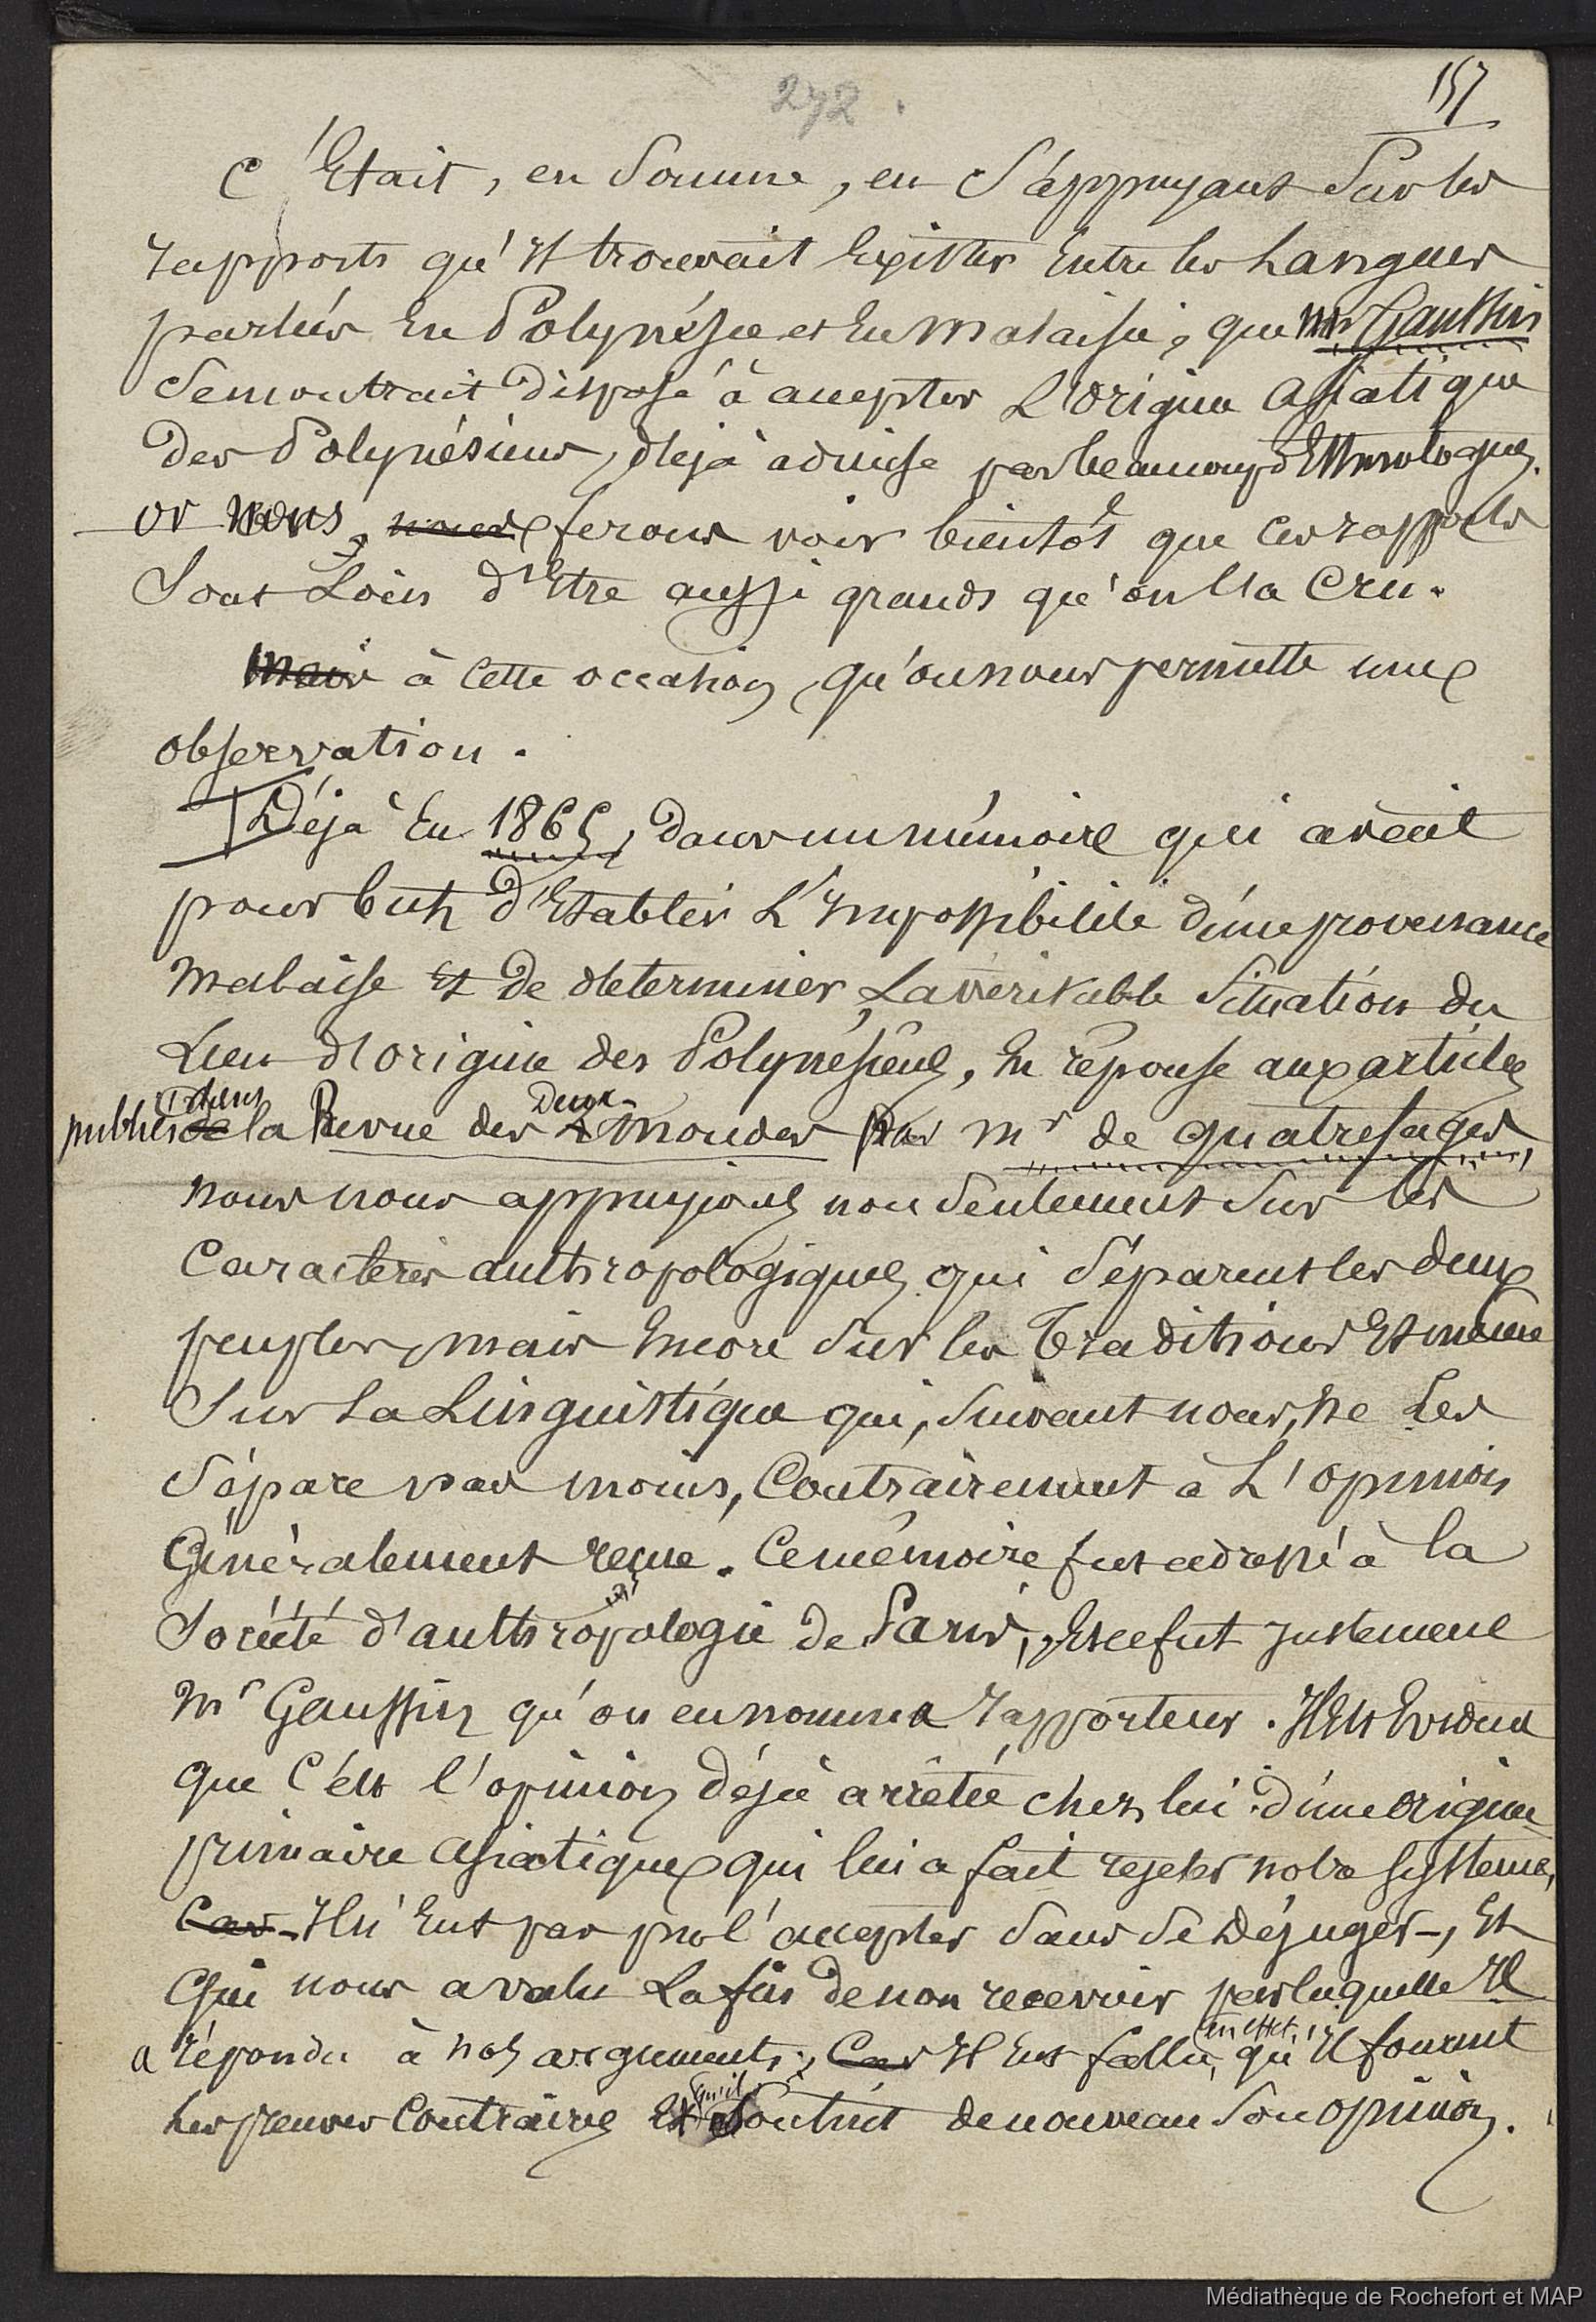 272.
157
C'Etait, en Somme, en S'appuyant Sur les
rapports qu'Il trouvait Exister Entre les Langues
parlées En Polynésie et En Malaisie, que Mr Gaussin
Se montrait Disposé à accepter L'origine asiatique
Des Polynésiens, déjà admise par beaucoup d'Ethnologues.
or nous, nous ferons voir bientôt que Ces rapports
Sont Loin d'Etre aussi grands qu'on l'a Cru.
Mais à Cette occasion, qu'on nous permette une
observation.
Déjà En 1865, Dans un mémoire qui avait
pour but d'Etablir L'Impossibilité d'une provenance
Malaise Et De déterminer La véritable Situation du
Lieu d'origine des Polynésiens, En réponse aux articles
publiés de dans la Revue des 2 Deux Mondes Par Mr de Quatrefages,
nous nous appuyions non Seulement Sur les
Caractères anthropologiques qui Séparent les deux
peuples, mais Encore Sur les Traditions Et même
Sur La Linguistique qui, Suivant nous, ne Les
Sépare pas moins, Contrairement à L'opinion
Généralement reçue. Ce mémoire fut adressé à la
Société d'anthropologie de Paris, Et ce fut Justement
Mr Gaussin qu'on en nomma rapporteur. Il Est Evident
que C'est l'opinion déjà arrêtée chez lui d'une origine
primaire asiatique qui lui a fait rejeter notre Système,
Car Il n'Eut pas pu l'accepter Sans Se Déjuger -, Et
Qui nous a valu La fin de non recevoir par laquelle Il
a répondu à nos arguments; Car Il Eut fallu, en effet, qu'Il fournit
Les preuves Contraires Et qu'il Soutint de nouveau Son opinion.
Médiathèque de Rochefort et MAP